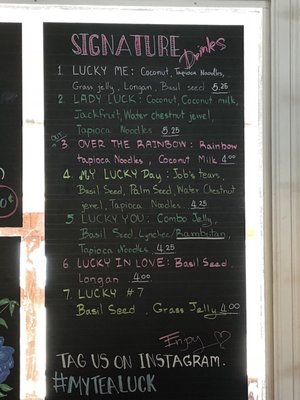 SIGNATURE Drinks
1. LUCKY ME: Coconut, Tapioca Noodles,
Grass jelly, Longan, Basil seed 5.25
2. LADY LUCK: Coconut, Coconut milk,
Jackfruit, Water chestnut jewel,
Tapioca Noodles 5.25
3 OVER THE RAINBOW: Rainbow
tapioca Noodles, Coconut Milk 4.00
4. MY LUCKY Day: Job's tears,
Basil Seed, Palm Seed, Water Chestnut
jewel, Tapioca Noodles. 4.25
5 LUCKY YOU: Combo Jelly,
Basil Seed, Lynchee/Rambutan,
Tapioca Noodles. 4.25
6 LUCKY IN LOVE: Basil Seed,
Longan. 4.00
7. LUCKY #7
Basil Seed, Grass Jelly 4.00
Enjoy
TAG US ON INSTAGRAM.
#MYTEALUCK